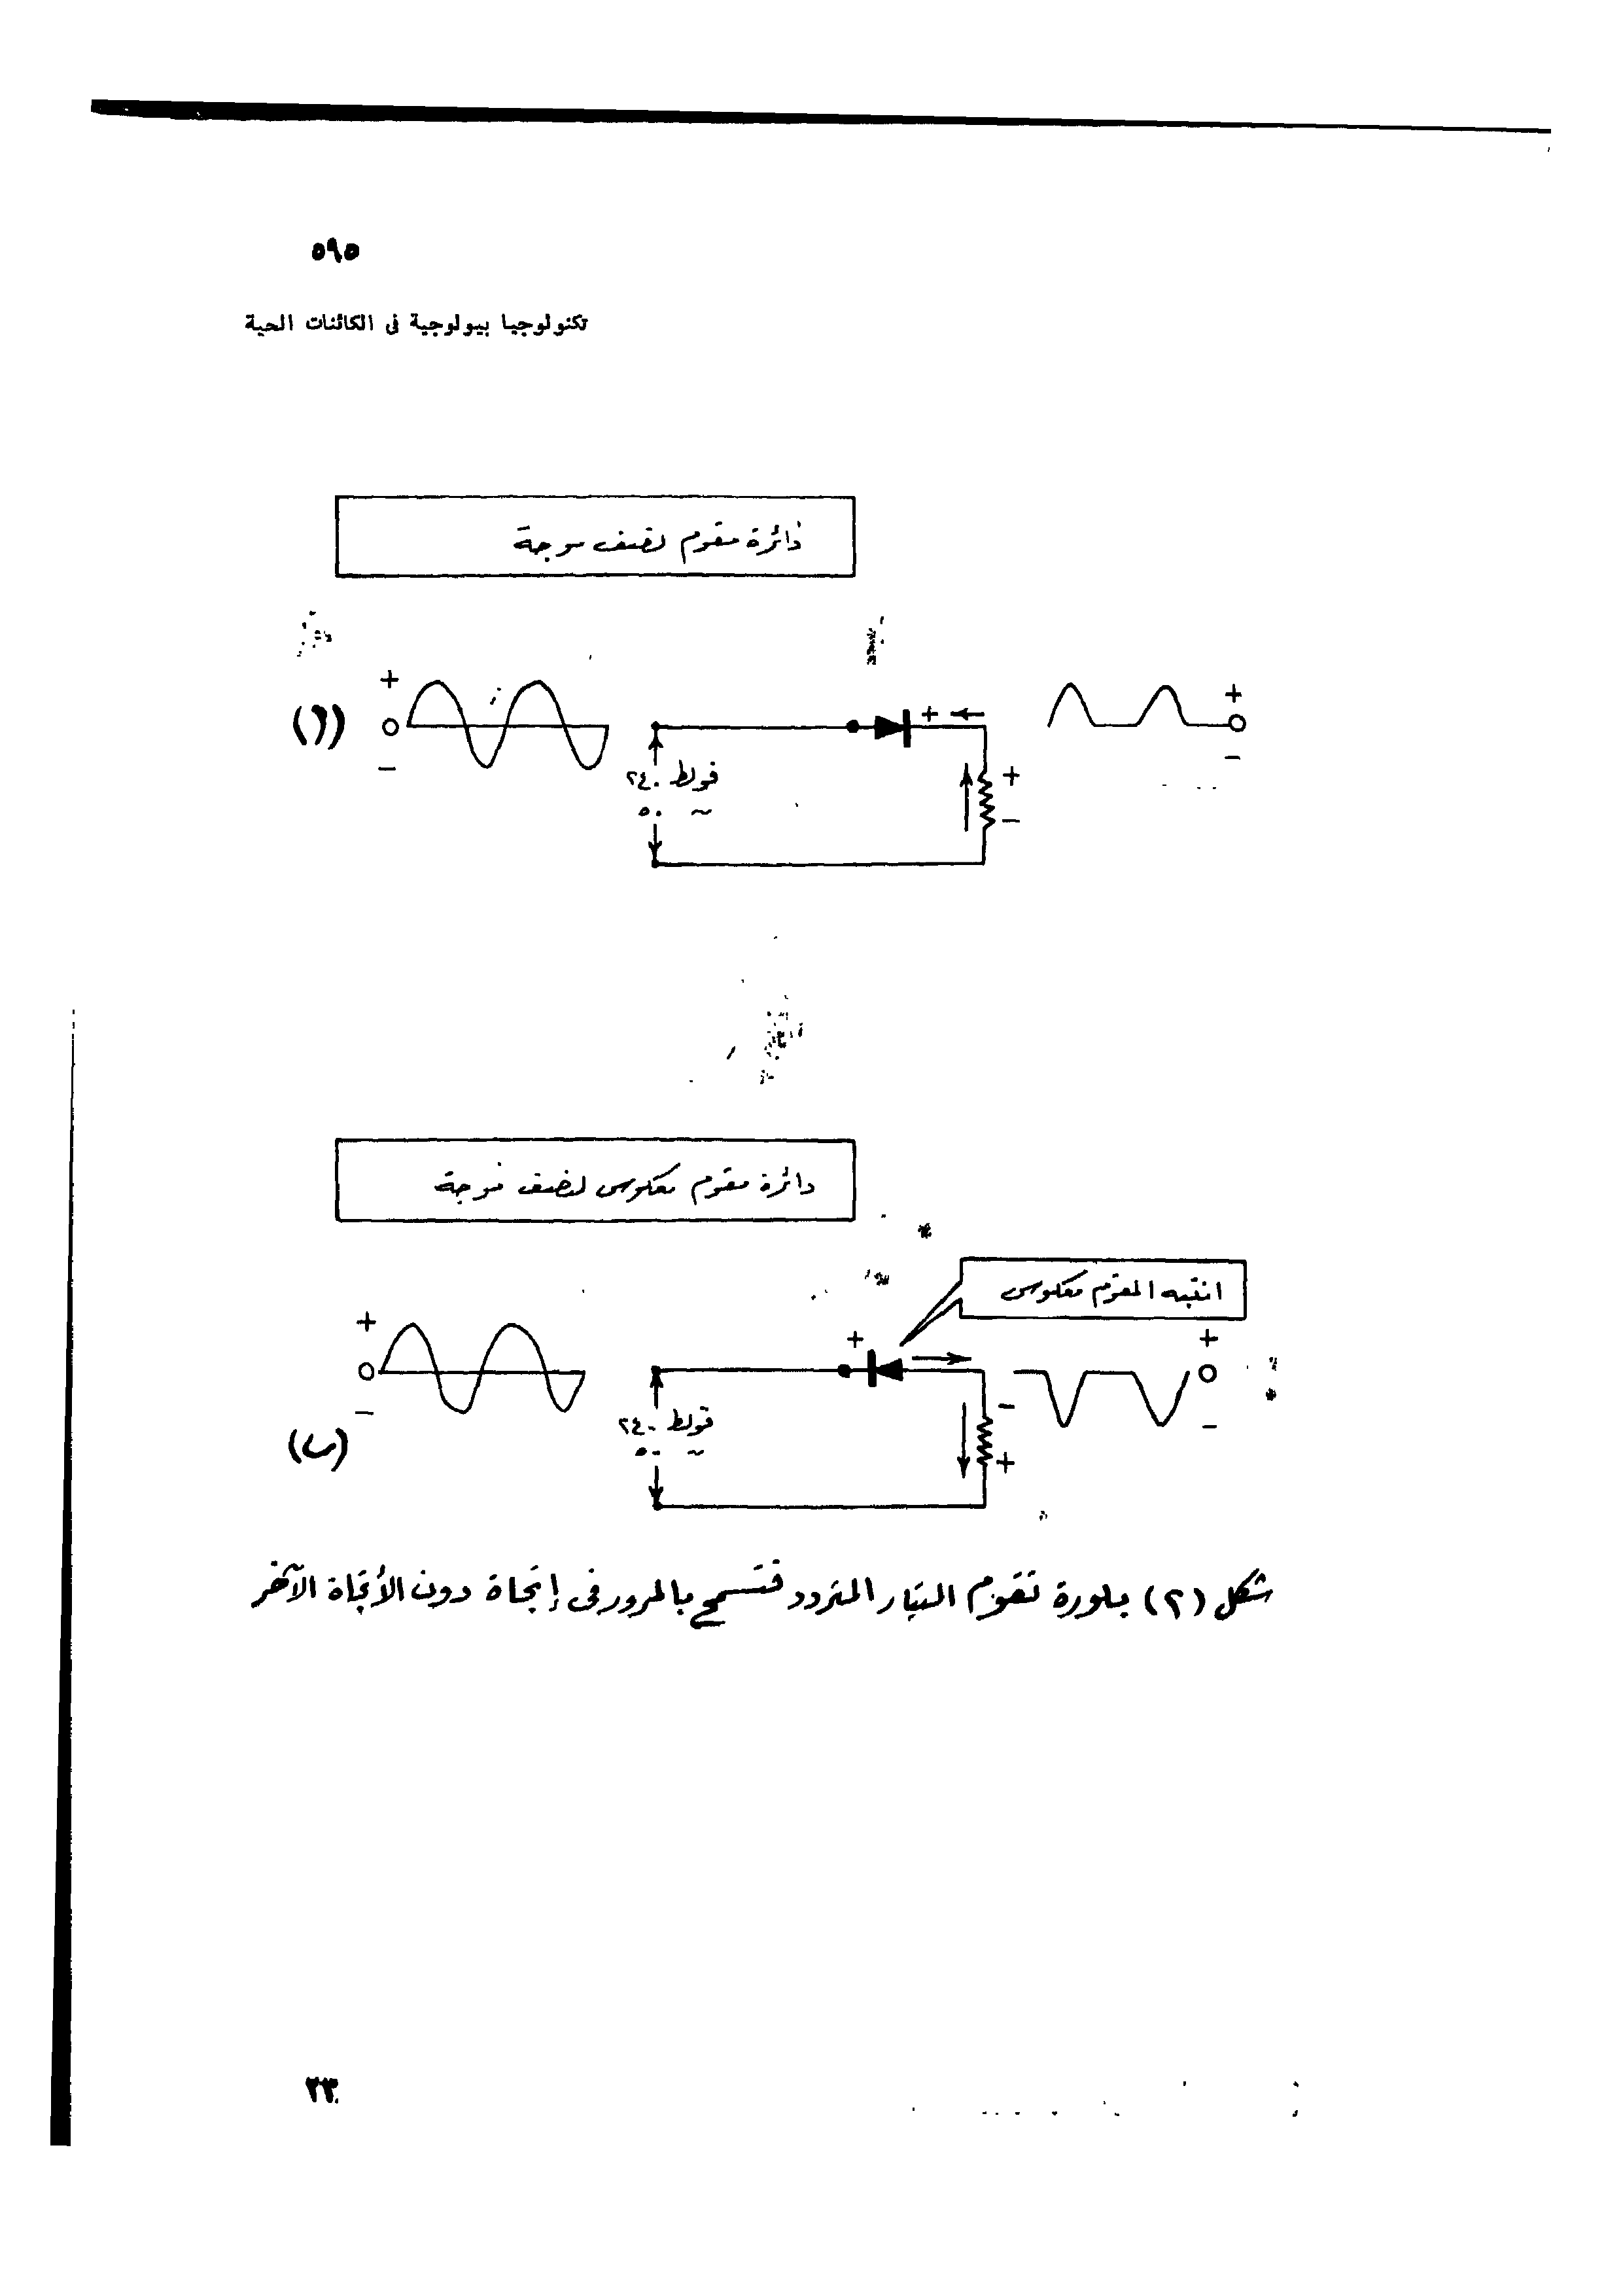 ٥٩٥
تكنولوجيا بيولوجية فى الكائنات الحية
دائرة مقوم لنصف موجة
(أ)
+
٥
-
+ ←
٢٤٠ فولط
٥٠ ~
+
-
+
٥
-
دائرة مقوم معكوس لنصف موجة
انتبه المقوم معكوس
(ب)
+
٥
-
+
٢٤٠ فولط
٥٠ ~
-
+
+
٥
-
شكل (٢) بلورة تقوم التيار المتردد فتسمح بالمرور فى إتجاة دون الأتجاة الآخر
٢٣